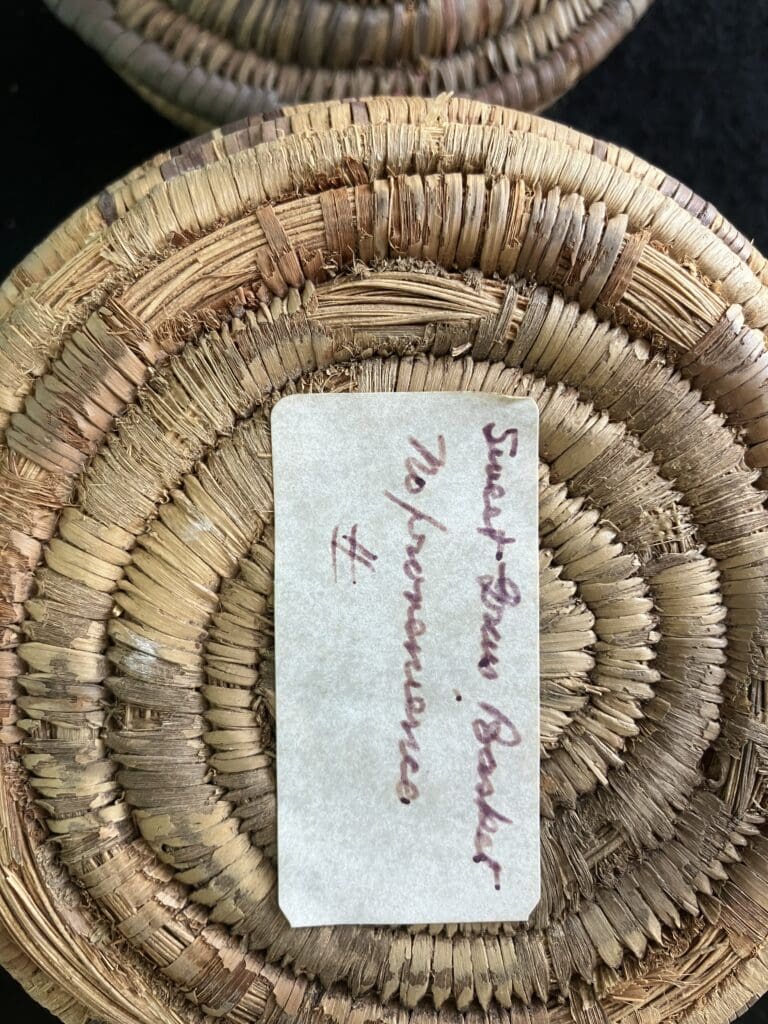 Sweet-Grass Basket
No provenience
#